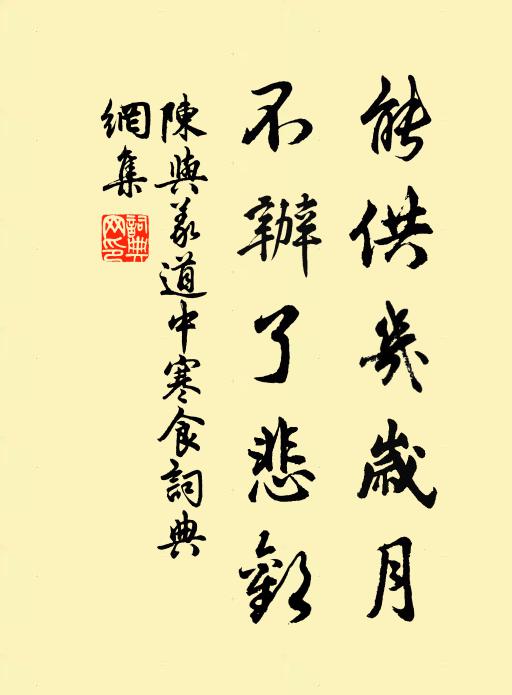 能供幾歲月
不辦了悲歡
陳與義道中寒食詞典
網集
詞典網印